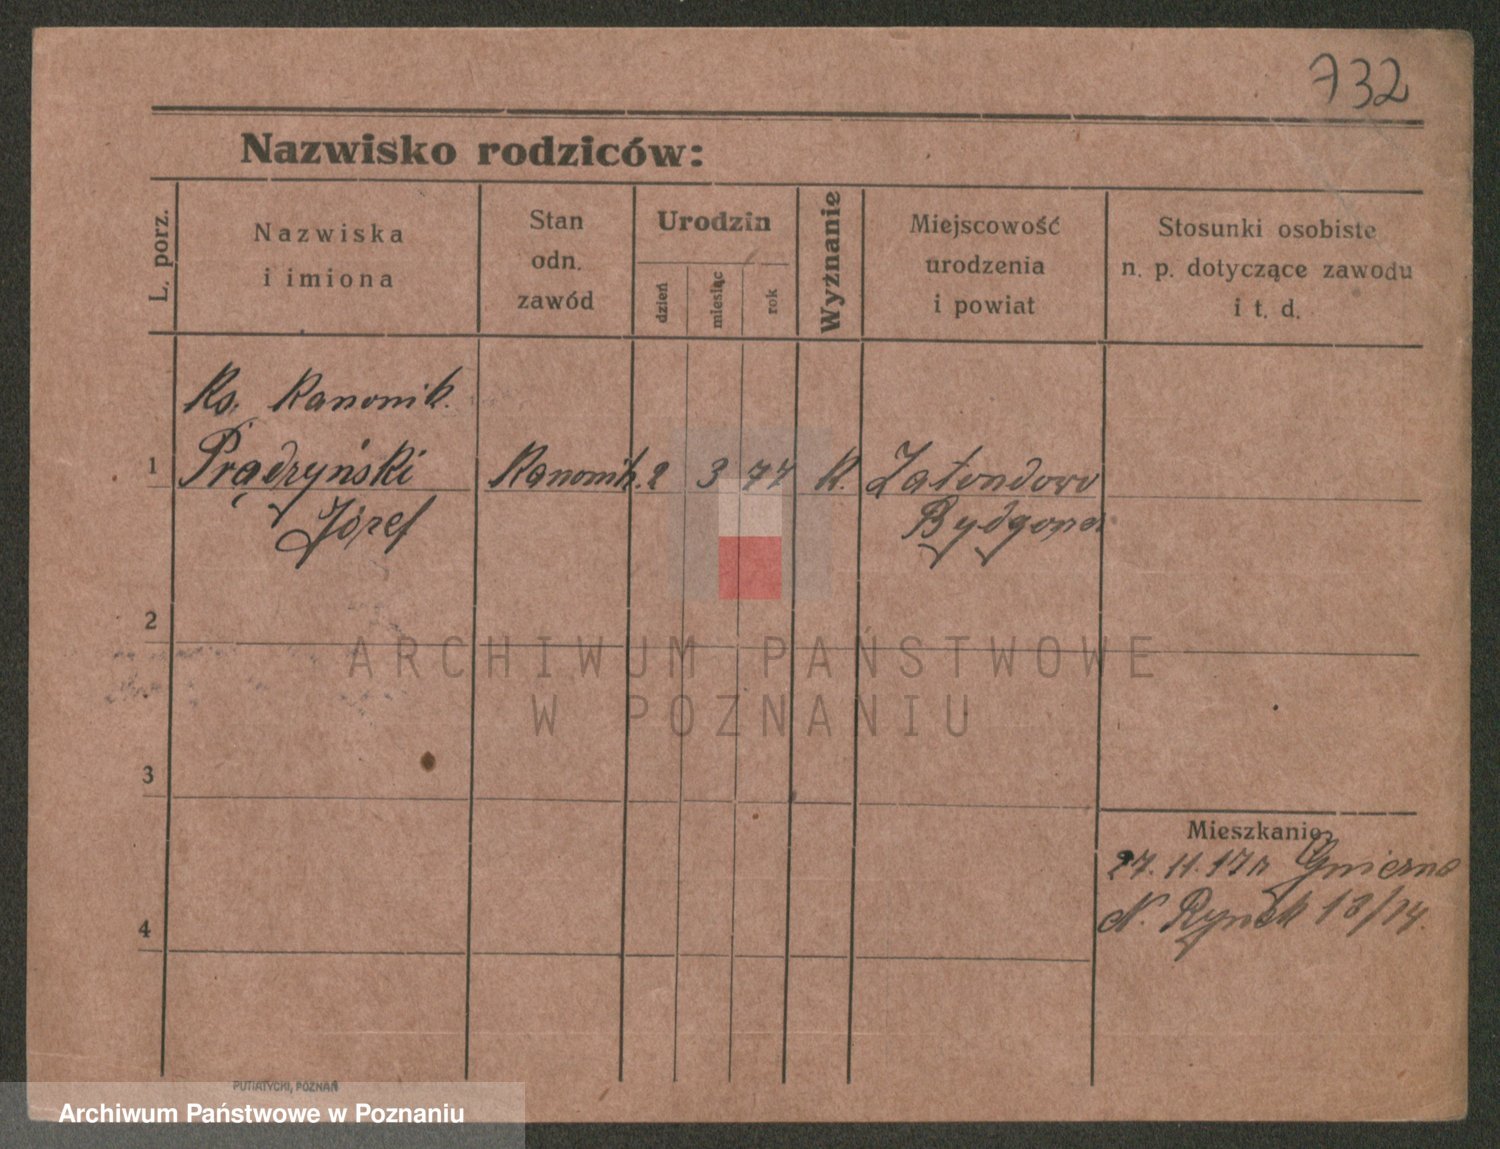 732
Nazwisko rodziców:
L. porz.
Nazwiska
i imiona
Stan
odn.
zawód
Urodzin
dzień
miesiąc
rok
Wyznanie
Miejscowość
urodzenia
i powiat
Stosunki osobiste
n. p. dotyczące zawodu
i t. d.
Ks. Kanonik.
1 Prądzyński Kanonik. 2 3 77 K.
Józef
2
3
4
Mieszkanie
Rynek 13/14.
ARCHIWUM PAŃSTWOWE
W POZNANIU
PUTIATYCKI, POZNAŃ
Archiwum Państwowe w Poznaniu